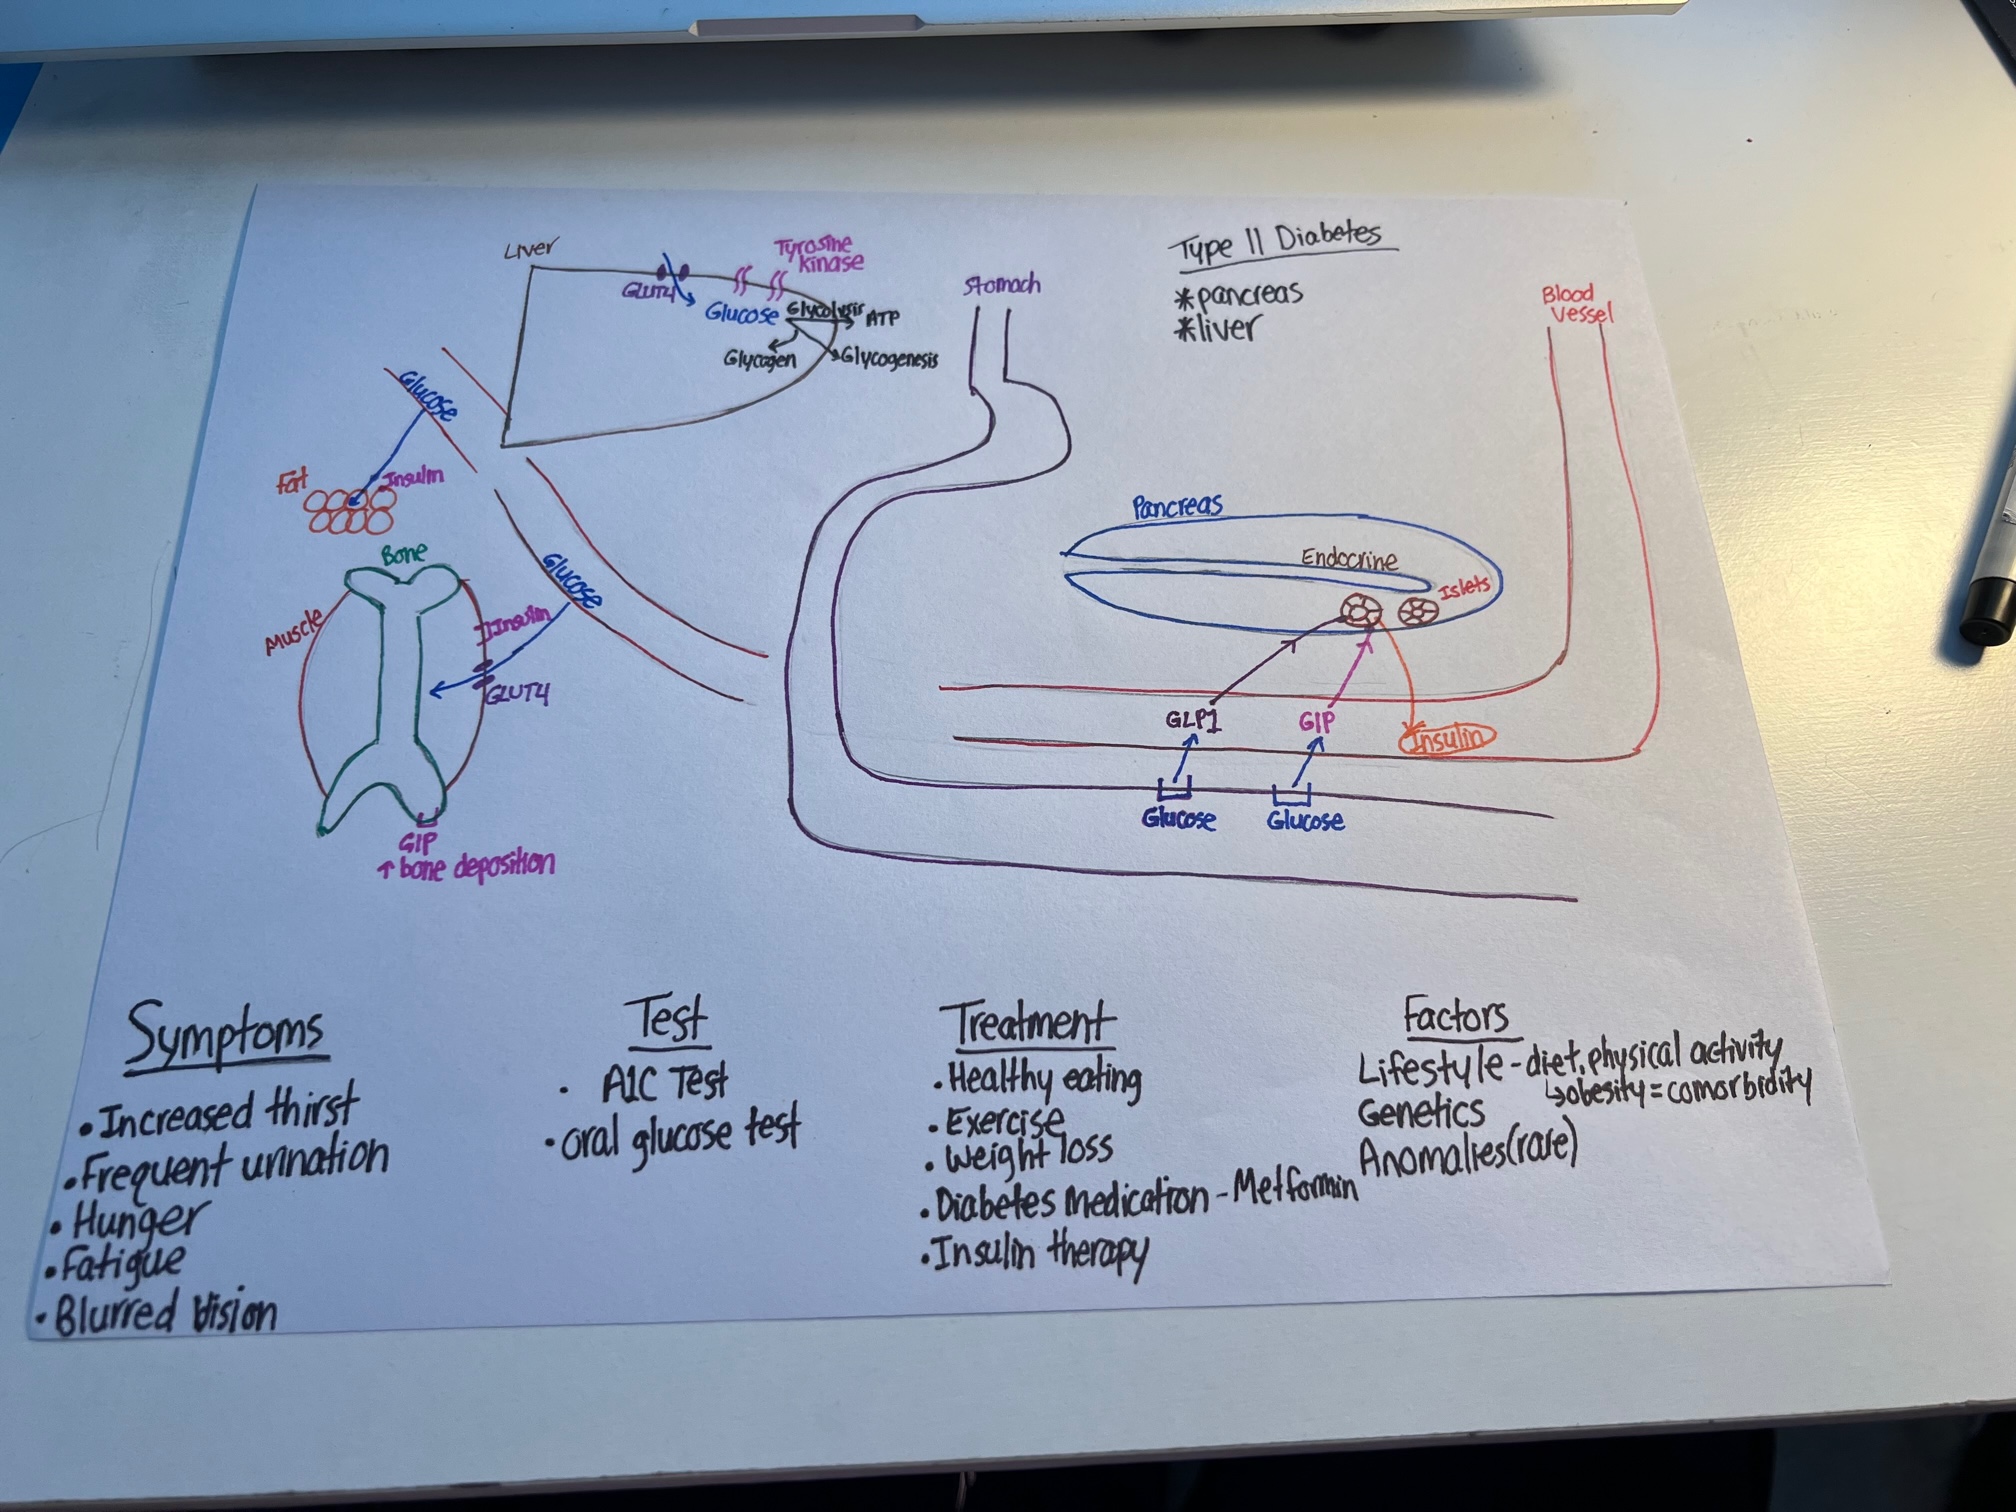 Liver
Tyrosine
kinase
GLUT4
Glucose
Glycolysis
ATP
Glycogen
Glycogenesis
Stomach
Type II Diabetes
*pancreas
*liver
Blood
Vessel
Glucose
Fat
Insulin
Bone
Muscle
Glucose
Insulin
GLUT4
GIP
↑ bone deposition
Pancreas
Endocrine
Islets
GLP1
GIP
Insulin
Glucose
Glucose
Symptoms
• Increased thirst
• Frequent urination
• Hunger
• Fatigue
• Blurred Vision
Test
• A1C Test
• oral glucose test
Treatment
• Healthy eating
• Exercise
• Weight loss
• Diabetes Medication - Metformin
• Insulin therapy
Factors
Lifestyle - diet, physical activity
↳ obesity = comorbidity
Genetics
Anomalies (rare)